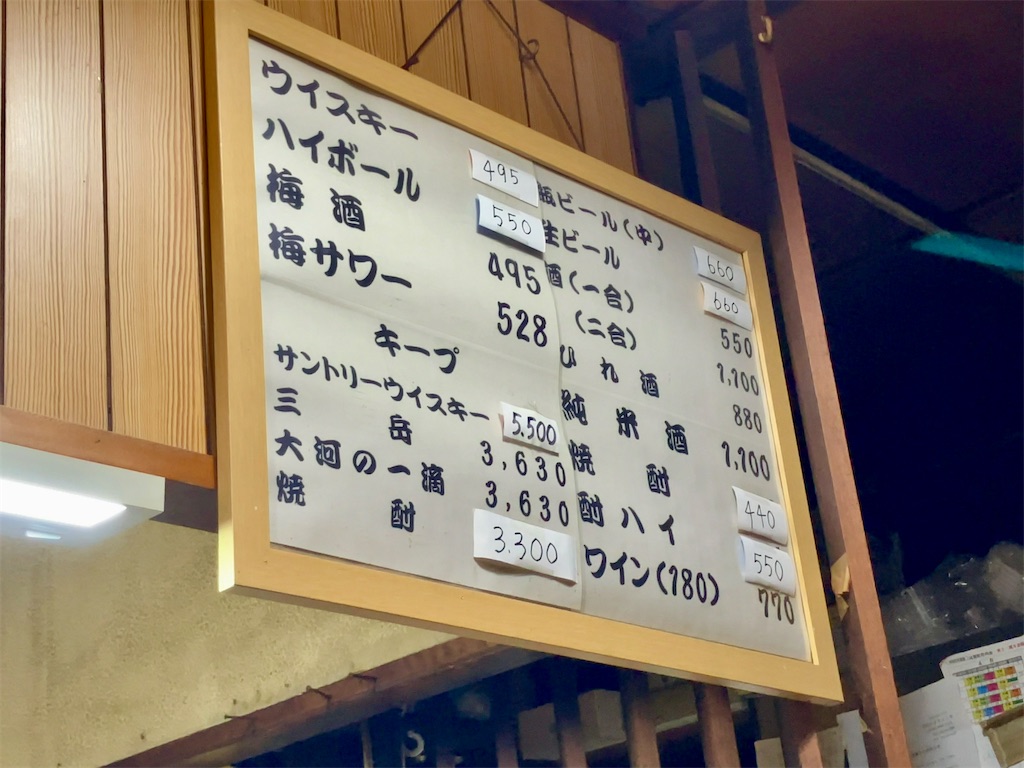 ウイスキー 495
ハイボール 550
梅酒 495
梅サワー 528
キープ
サントリーウイスキー 5.500
三岳 3,630
大河の一滴 3,630
焼酎 3.300
瓶ビール(中) 660
生ビール 660
酒(一合) 550
(二合) 1,100
ひれ酒 880
純米酒 1,100
焼酎 440
酎ハイ 550
ワイン(180) 770